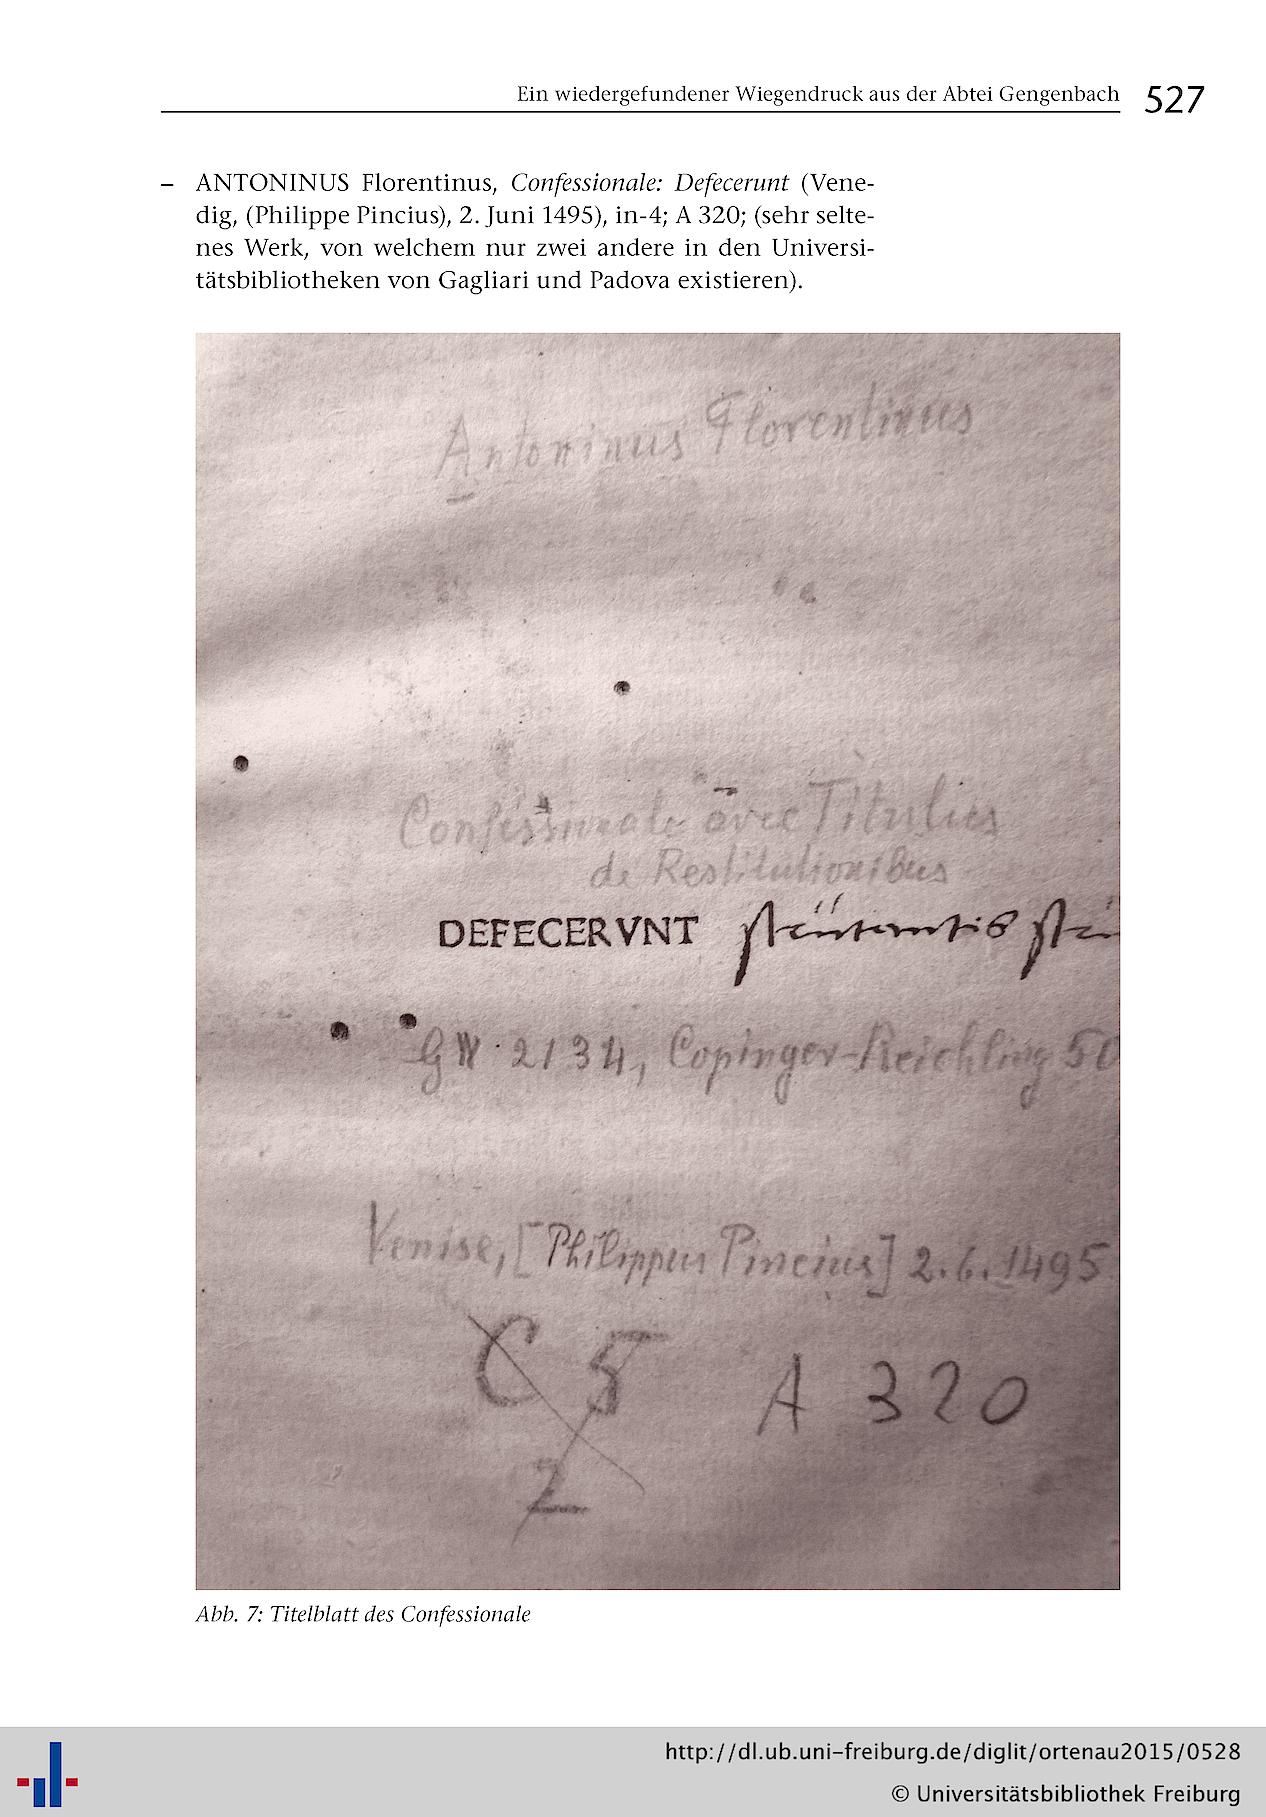 Ein wiedergefundener Wiegendruck aus der Abtei Gengenbach 527
– ANTONINUS Florentinus, Confessionale: Defecerunt (Vene-
dig, (Philippe Pincius), 2. Juni 1495), in-4; A 320; (sehr selte-
nes Werk, von welchem nur zwei andere in den Universi-
tätsbibliotheken von Gagliari und Padova existieren).
Antoninus Florentinus
Confessionale avec Titulus
de Restitutionibus
DEFECERVNT
GW 2134, Copinger-Reichling 50
Venise, [Philippus Pincius] 2.6.1495
C 5 A 320
2
Abb. 7: Titelblatt des Confessionale
http://dl.ub.uni-freiburg.de/diglit/ortenau2015/0528
© Universitätsbibliothek Freiburg